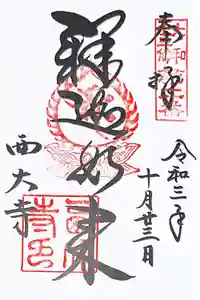 奉拝
令和三年
十月廿三日
釋迦如来
西大寺